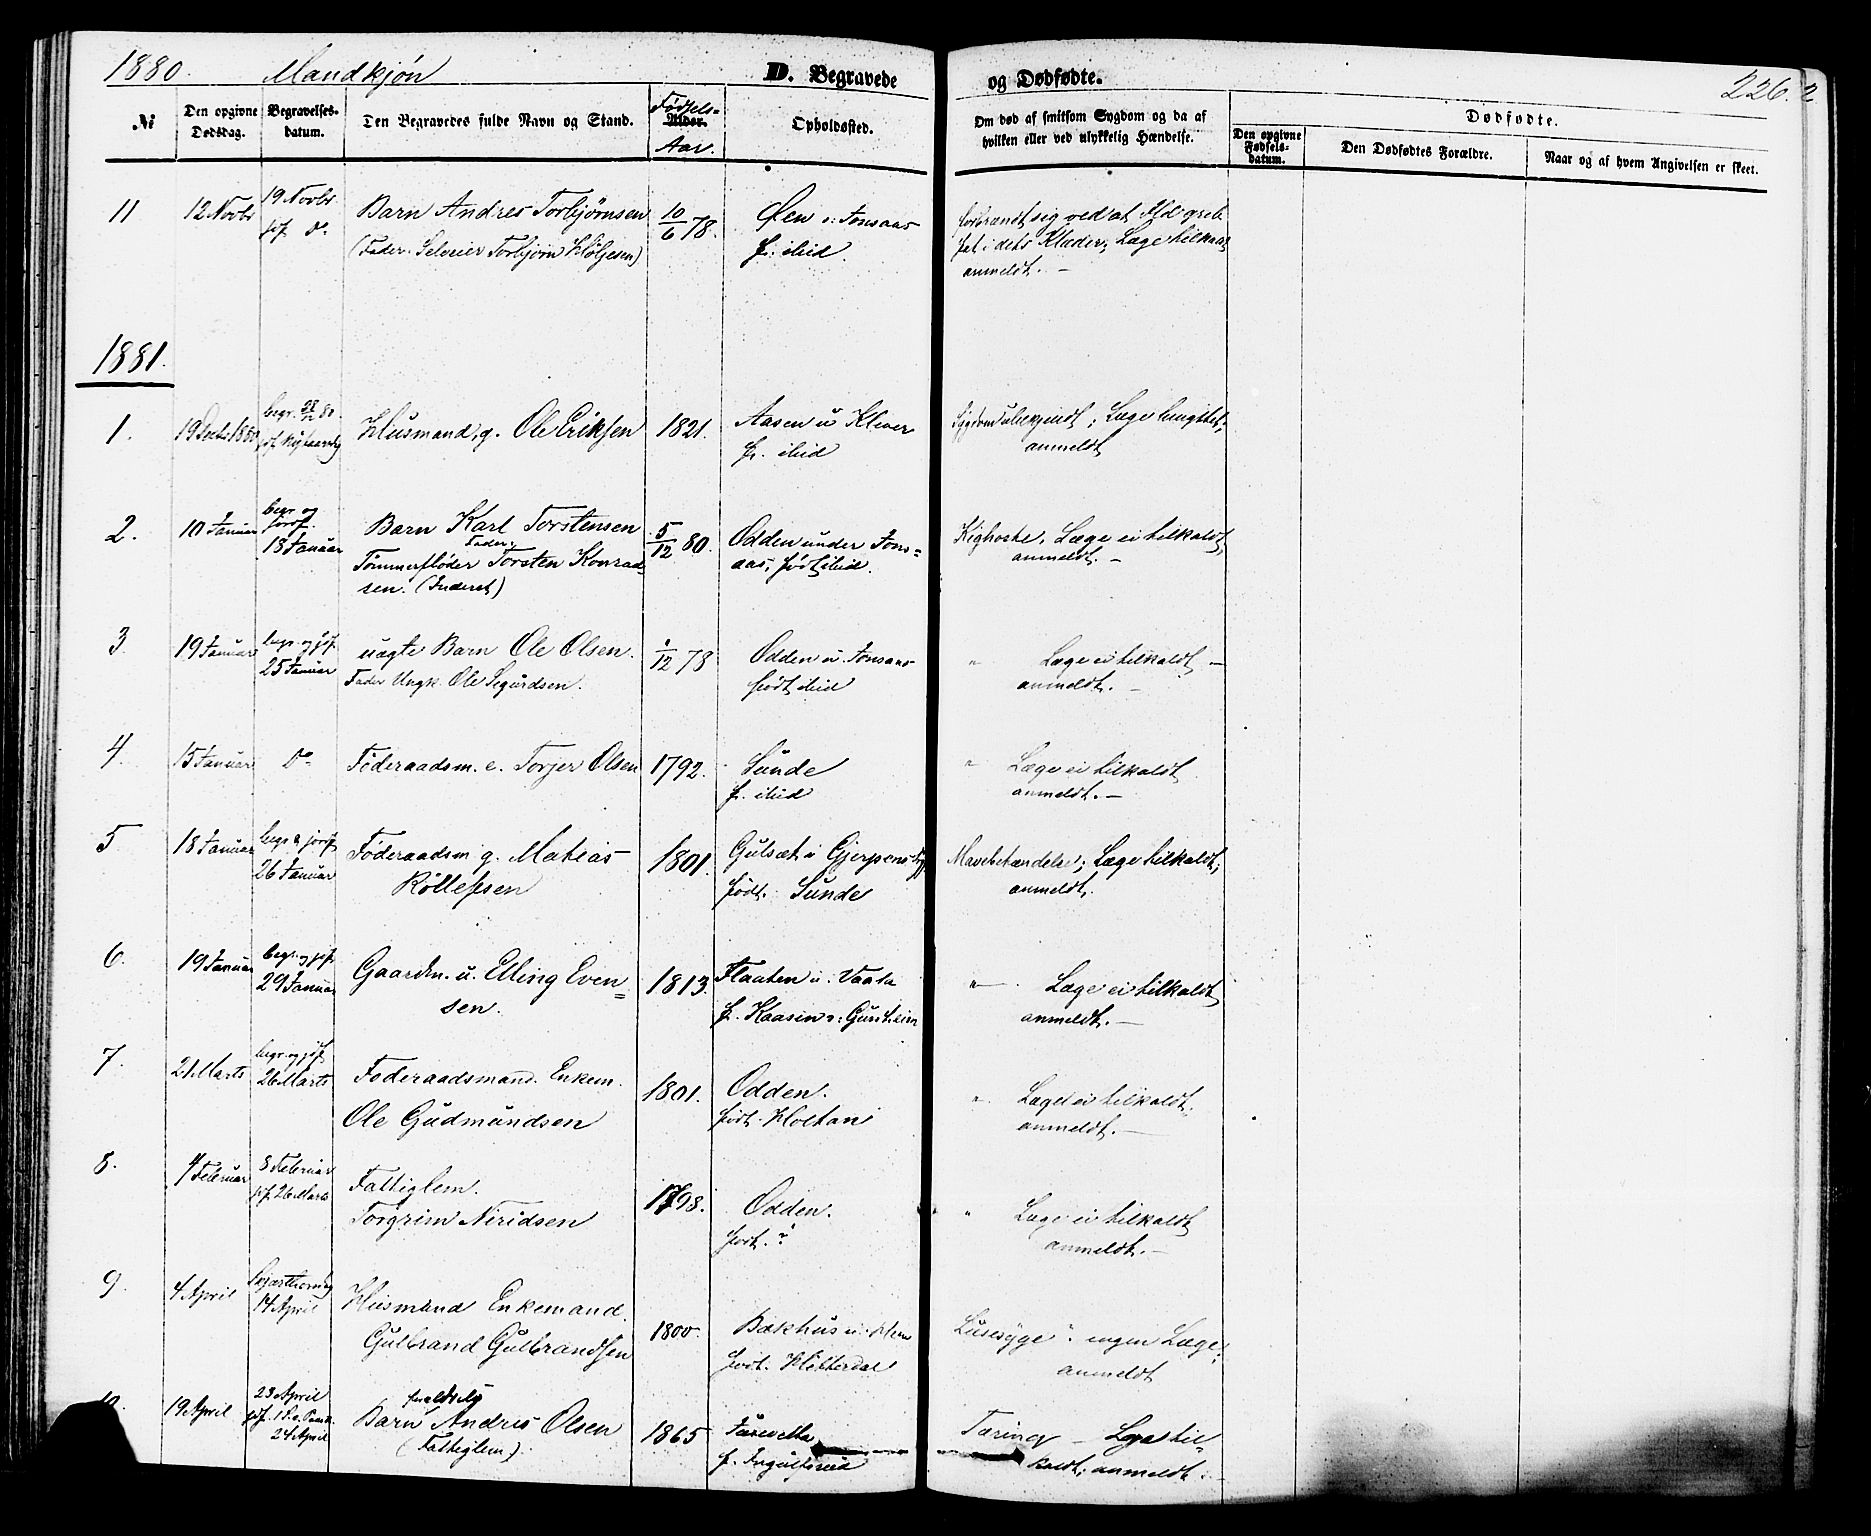 1880. Mandkjøn D. Begravede og Dødfødte. 226.
No
Den opgivne Dødsdag.
Begravelses-datum.
Den Begravedes fulde Navn og Stand.
Fødsels-
Alder.
Aar.
Opholdssted.
Om død af smitsom Sygdom og da af
hvilken eller ved ulykkelig Hændelse.
Dødfødte.
Den opgivne Fødsels-datum.
Den Dødfødtes Forældre.
Naar og af hvem Angivelsen er skeet.
11 12 Novbr 19 Novbr Barn Andres Torbjørnsen 10/6 78. Øen u: Tonsaas forbrændt sig ved at Ild greb
jóf. Do (Fader. Torbjørn Høljesen) f: ibid. fat i dets Klæder; Læge tilkaldt
anmeldt. —
1881.
1. 19 Decbr 1880 begr. 28/12 80. Husmand, g. Ole Eriksen 1821. Aasen u Klever Sygdom ubekjendt; Læge
f. ibid anmeldt
2. 10 Januar begr. og jordf. 18 Januar Barn Karl Torstensen 5/12 80. Odden under Tons= Kighoste, Læge ei tilkaldt,
Fader:
Tømmerfløder Torsten Konrad= aas; født ibid. anmeldt. —
sen. (Inderst)
3. 19 Januar begr. og jóf. uægte Barn Ole Olsen. /12 78 Odden u. Tonsaas " Læge ei tilkaldt —
25 Januar Fader Ungk. Ole Sigurdsen. født ibid anmeldt. —
4. 15 Januar Do Föderaadsm. e. Torjer Olsen 1792. Sunde " Læge ei tilkaldt
f. ibid anmeldt. —
5. 18 Januar begr. & jordf Föderaadsm g. Matias 1801. Gulsæt i Gjerpens Mavebetændelse; Læge tilkaldt;
26 Januar Rollefsen født. Sunde anmeldt.
6. 19 Januar begr. og jóf. Gaardm. u. Elling Even= 1813. Flaaten u. Vaala " Læge ei tilkaldt
29 Januar sen. f. Kaasin u: Gunheim anmeldt. —
7. 21 Marts begr. og jóf. Foderaadsmand. Enkem. 1801. Odden. " Læge ei tilkaldt.
26 Marts Ole Gudmundsen født. Holtan anmeldt. —
8. Februar 8 Februar Fattiglem. 1798. Odden. " Læge ei tilkaldt
jóf. 26 Marts Torgrim Niridsen født. ? anmeldt. —
9. 4 April Skjærthorsdag Husmand Enkemand. 1800. Bækhus u. Luesyge ? ingen Læge;
14 April Gulbrand Gulbrandsen født. Hitterdal anmeldt
10. 19 April 23 April forældreløs 1865 Tæring — Læge til=
jóf. 1 S. e. Paask. Barn Andres Olsen f. kaldt; anmeldt. —
24 April (Fattiglem).